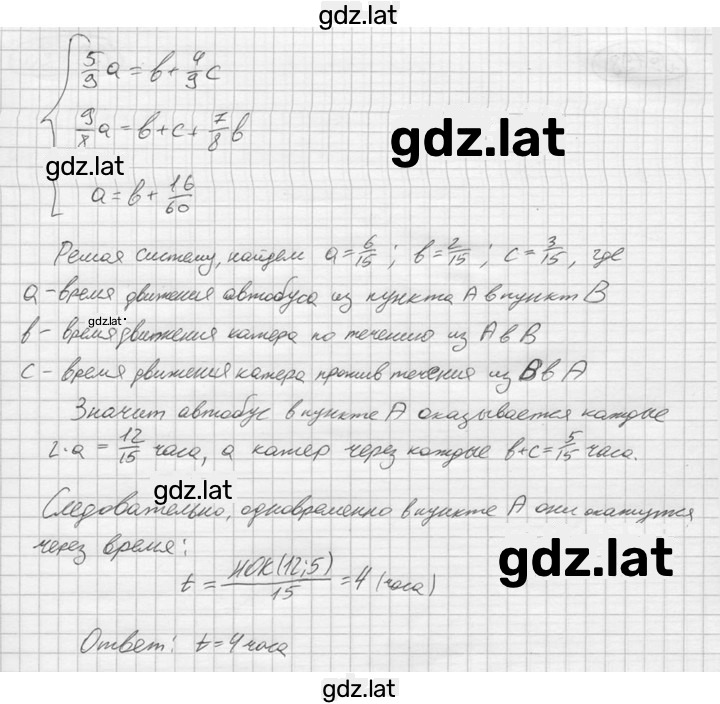 gdz.lat
5/9 a = b + 4/9 c
9/8 a = b + c + 7/8 b
gdz.lat
gdz.lat
a = b + 16/60
Решая систему, найдем a = 6/15 ; b = 2/15 ; c = 3/15 , где
a - время движения автобуса из пункта A в пункт B
gdz.lat
b - время движения катера по течению из A в B
c - время движения катера против течения из B в A
Значит автобус в пункте A оказывается каждые
2·a = 12/15 часа, а катер через каждые b+c = 5/15 часа.
gdz.lat
Следовательно, одновременно в пункте A они окажутся
через время:
gdz.lat
t = НОК(12;5)/15 = 4 (часа)
Ответ: t = 4 часа
gdz.lat